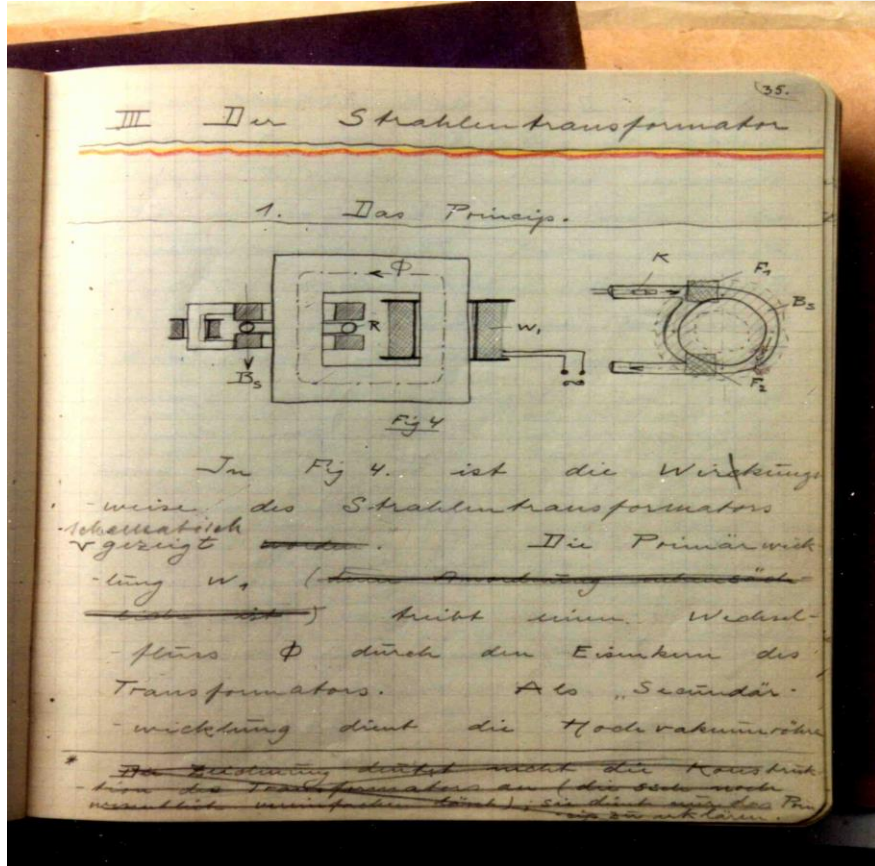 35.
III Der Strahlentransformator
1. Das Princip.
Φ
K
F₁
R
W₁
B₅
B₅
F₂
Fig 4
In Fig 4. ist die Wirckungs
-weise des Strahlentransformators
schematisch
gezeigt worden. Die Primärwick-
-lung W₁ (deren Anordnung nebensäch-
lich ist) treibt einen Wechsel-
-fluss Φ durch den Eisenkern des
Transformators. Als „Secundär-
-wicklung dient die Hochvakuumröhre
* Die Zeichnung deutet nicht die Konstruk-
-tion des Transformators an (die sich noch
wesentlich vereinfachen lässt), sie dient nur das Prin
cip zu erklären.